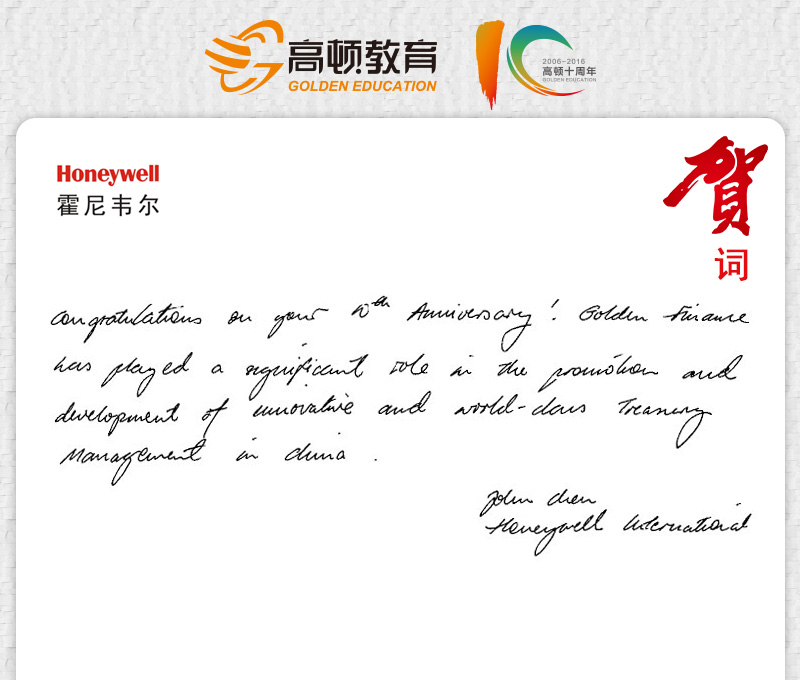 高顿教育
GOLDEN EDUCATION
2006-2016
高顿十周年
GOLDEN EDUCATION
Honeywell
霍尼韦尔
贺
词
Congratulations on your 10th Anniversary! Golden Finance
has played a significant role in the promotion and
development of innovative and world-class Treasury
Management in China.
John Chen
Honeywell International